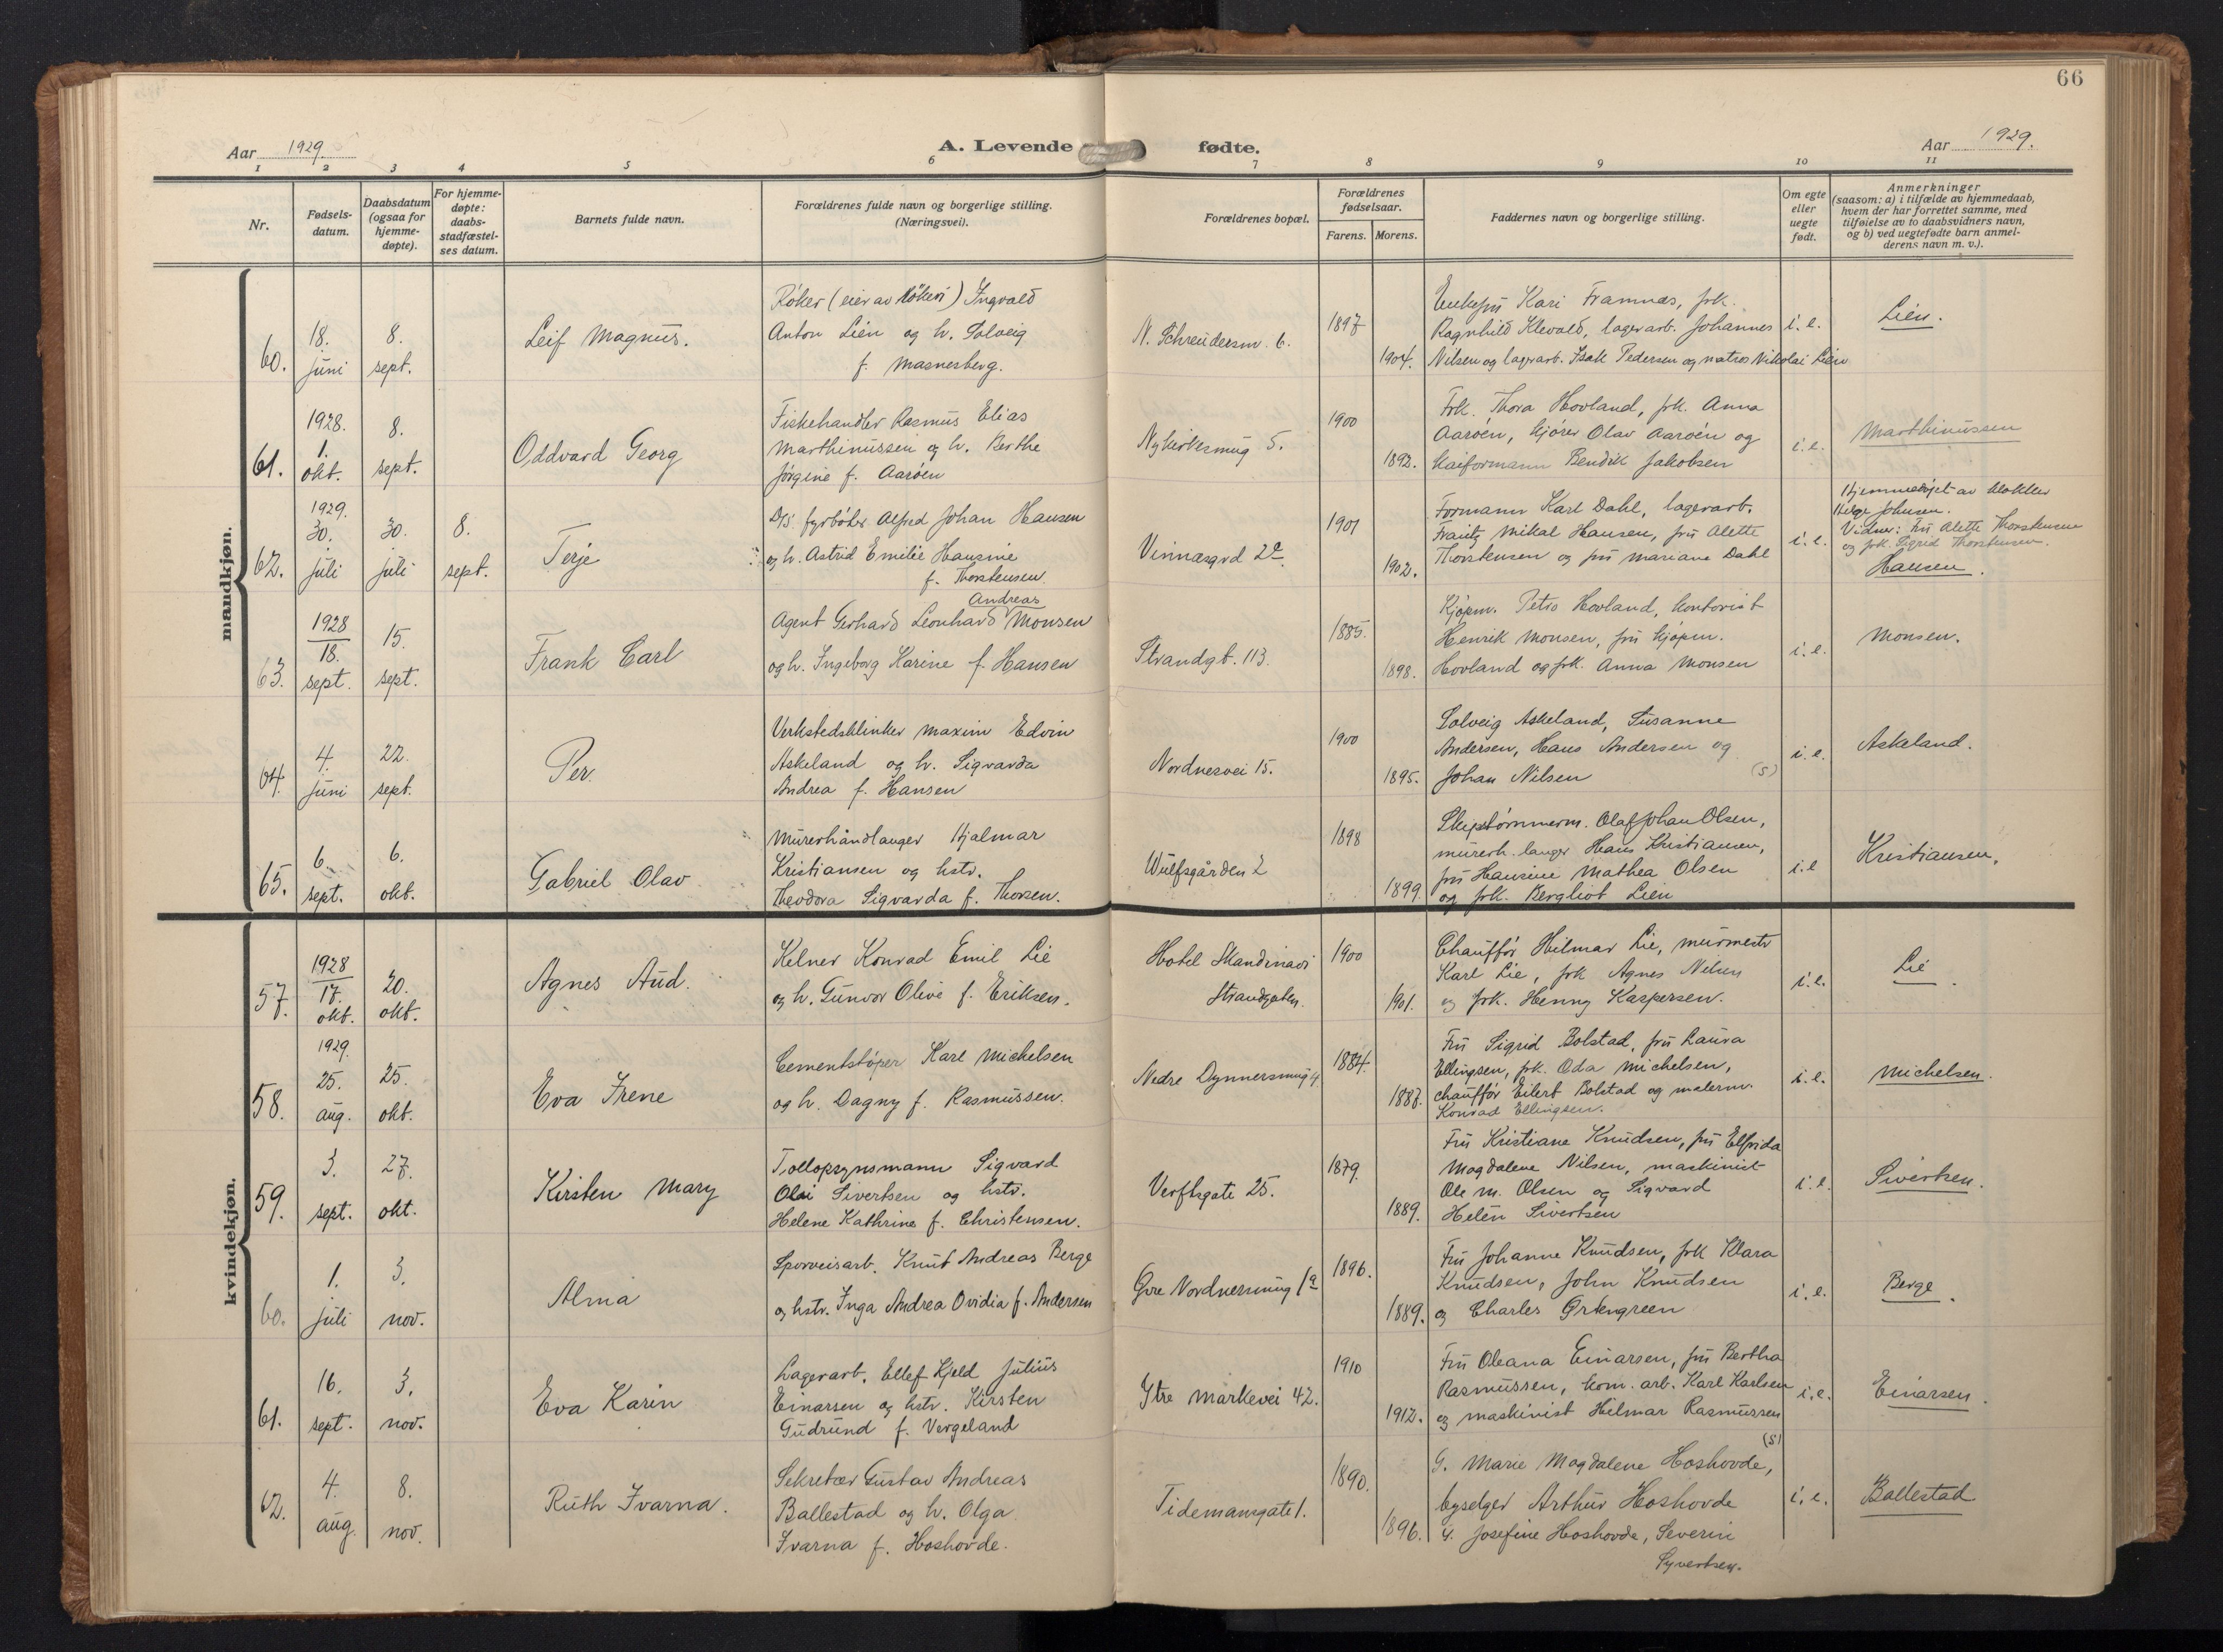 66
Aar 1929.
A. Levende fødte.
Aar 1929.
1 2 3 4 5 6 7 8 9 10 11
Nr.
Fødsels-
datum.
Daabsdatum
(ogsaa for
hjemme-
døpte).
For hjemme-
døpte:
daabs-
stadfæstel-
ses datum.
Barnets fulde navn.
Forældrenes fulde navn og borgerlige stilling.
(Næringsvei).
Forældrenes bopæl.
Forældrenes
fødselsaar.
Farens. Morens.
Faddernes navn og borgerlige stilling.
Om egte
eller
uegte
født.
Anmerkninger
(saasom: a) i tilfælde av hjemmedaab,
hvem der har forrettet samme, med
tilføielse av to daabsvidners navn,
og b) ved uegtefødte barn anmel-
derens navn m. v.).
mandkjøn.
60.
18.
juni
8.
sept.
Leif Magnus.
Røker (eier av røkeri) Ingvald
Anton Lien og h. Solveig
f. Masnesberg.
N. Schreudersm. 6.
1897
1904.
Enkefru Kari Framnæs, frk.
Ragnhild Klevald, lagerarb. Johannes
Nilsen og lagerarb. Isak Pedersen og matros Nikolai Lien
i. e.
Lien.
61.
1928.
1.
okt.
8.
sept.
Oddvard Georg
Fiskehandler Rasmus Elias
Marthinussen og h. Berthe
Jørgine f. Aarøen
Nykirkesmug 5.
1900
1892.
Frk. Thora Hovland, frk. Anna
Aarøen, kjører Olav Aarøen og
kaiformann Bendik Jakobsen
i. e.
Marthinussen
62.
1929.
30.
juli
30.
juli
8.
sept.
Terje
D/S. fyrbøter Alfred Johan Hansen
og h. Astrid Emilie Hansine
f. Thorstensen
Vinnæsgrd 2a
1901
1902.
Formann Karl Dahl, lagerarb.
Frantz Mikal Hansen, fru Alette
Thorstensen og fru Mariane Dahl
i. e.
Hjemmedøpt av klokker
Helge Johnsen.
Vidner: fru Alette Thorstensen
og frk. Sigrid Thorstensen.
Hansen.
63.
1928
18.
sept.
15.
sept.
Frank Carl
Andreas
Agent Gerhard Leonhard Monsen
og h. Ingeborg Karine f. Hansen
Strandgt. 113.
1885.
1898.
Kjøpm. Petro Hovland, kontorist
Henrik Monsen, fru kjøpm.
Hovland og frk. Anna Monsen
i. e.
Monsen.
64.
4.
juni
22.
sept.
Per.
Verkstedsklinker Maxim Edvin
Askeland og h. Sigvarda
Andrea f. Hansen
Nordnesvei 15.
1900
1895.
Solveig Askeland, Susanne
Andersen, Hans Andersen og
Johan Nilsen (S)
i. e.
Askeland.
65.
6.
sept.
6.
okt.
Gabriel Olav
Murerhåndlanger Hjalmar
Kristiansen og hstr.
Theodora Sigvarda f. Thorsen.
Wulfsgården 2
1898
1899.
Skipstømmerm. Olaf Johan Olsen,
murerh.langer Hans Kristiansen,
fru Hansine Mathea Olsen
og frk. Bergliot Lien
i. e
Kristiansen.
kvindekjøn.
57.
1928
17.
okt.
20.
okt.
Agnes Aud.
Kelner Konrad Emil Lie
og h. Gunvor Olive f. Eriksen.
Hotel Skandinavi
Strandgaten.
1900
1901.
Chauffør Hilmar Lie, murmestr
Karl Lie, frk Agnes Nilsen
og frk. Henny Kaspersen.
i. e.
Lie.
58.
1929.
25.
aug.
25.
okt.
Eva Irene
Cementstøper Karl Michelsen
og h. Dagny f. Rasmussen.
Nedre Dynnersmug 4.
1884.
1887.
Fru Sigrid Bolstad, fru Laura
Ellingsen, frk. Oda Michelsen,
chauffør Eilert Bolstad og malerm.
Konrad Ellingsen.
i. e.
Michelsen.
59.
3.
sept.
27.
okt.
Kirsten Mary
Tollopsynsmann Sigvard
Olai Sivertsen og hstr.
Helene Kathrine f. Christensen.
Verftsgate 25.
1879.
1889.
Fru Kristiane Knudsen, fru Elfrida
Magdalene Nilsen, maskinist
Ole M. Olsen og Sigvard
Helén Sivertsen
i. e.
Sivertsen.
60.
1.
juli
3.
nov.
Alma
Sporveisarb. Knut Andreas Berge
og hstr. Inga Andrea Ovidia f. Andersen
Øvre Nordnesmug 1a
1896.
1889.
Fru Johanne Knudsen, frk Klara
Knudsen, John Knudsen
og Charles
i. e.
Berge.
61.
16.
sept.
3.
nov.
Eva Karin
Lagerarb. Ellef Kjeld Julius
Einarsen og hstr. Kirsten
Gudrund f. Vergeland
Ytre Markevei 42.
1910
1912.
Fru Oleana Einarsen, fru Bertha
Rasmussen, kom. arb. Karl Karlsen
og maskinist Hilmar Rasmussen
(S)
i. e.
Einarsen.
62.
4.
aug.
8.
nov.
Ruth Ivarna.
Sekretær Gustav Andreas
Ballestad og h. Olga
Ivarna f. Hoshovde.
Tidemansgate 1.
1890.
1896.
G. Marie Magdalene Hoshovde,
byselger Arthur Hoshovde
U. Josefine Hoshovde, Severin
Syvertsen.
i. e.
Ballestad